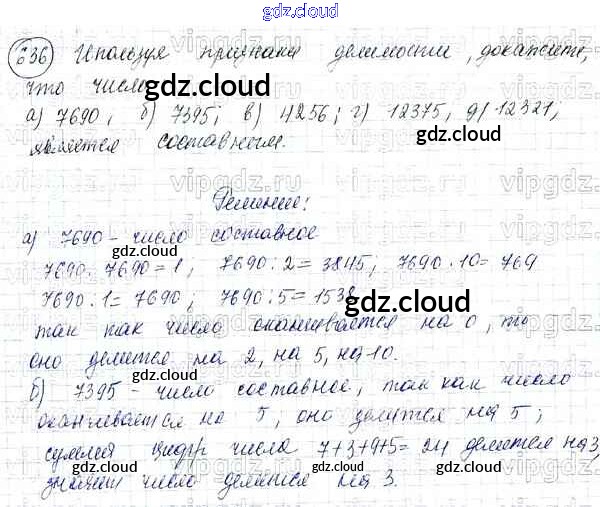 gdz.cloud
636 Используя признаки делимости, докажите,
что числа gdz.cloud
а) 7690, б) 7395; в) 4256; г) 12375, д) 12321;
является составным.
Решение:
а) 7690 - число составное
gdz.cloud
7690 : 7690 = 1, 7690 : 2 = 3845; 7690 : 10 = 769
7690 : 1 = 7690, 7690 : 5 = 1538
gdz.cloud
так как число оканчивается на 0, то
оно делится на 2, на 5, на 10.
gdz.cloud
б) 7395 - число составное, так как число
оканчивается на 5, оно делится на 5;
сумма цифр числа 7+3+9+5=24 делится на 3,
gdz.cloud
значит число делится на 3.